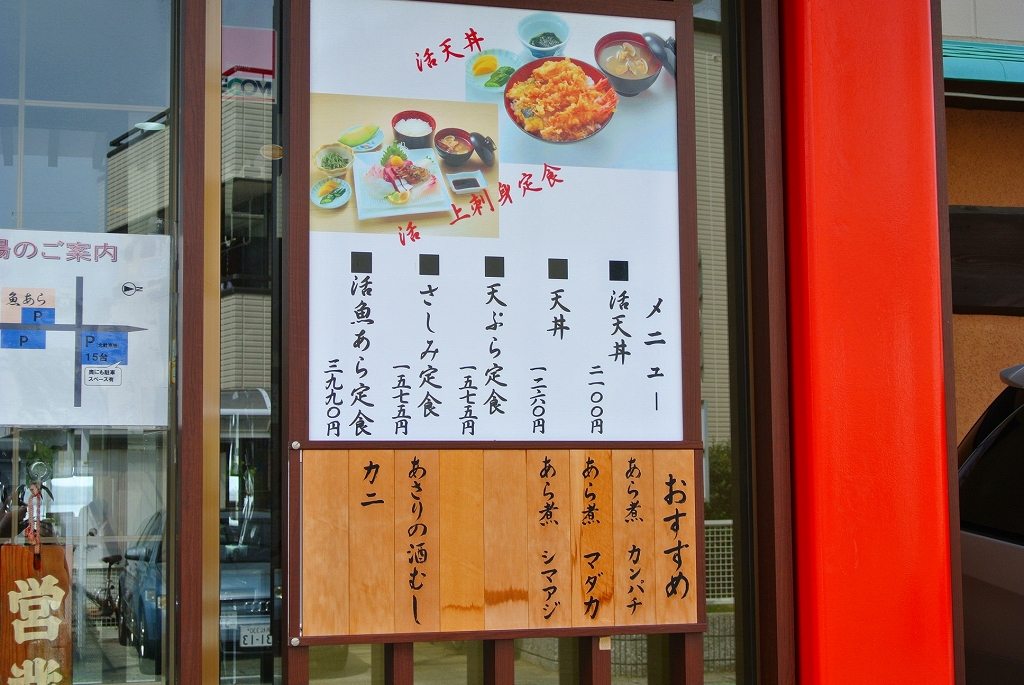 活天丼
活 上刺身定食
メニュー
■活天丼
二一〇〇円
■天丼
一二六〇円
■天ぷら定食
一五七五円
■さしみ定食
一五七五円
■活魚あら定食
三九九〇円
おすすめ
あら煮 カンパチ
あら煮 マダカ
あら煮 シマアジ
あさりの酒むし
カニ
場のご案内
魚あら
P
P
P
15台
他にも駐車
スペース有
営業
31-13